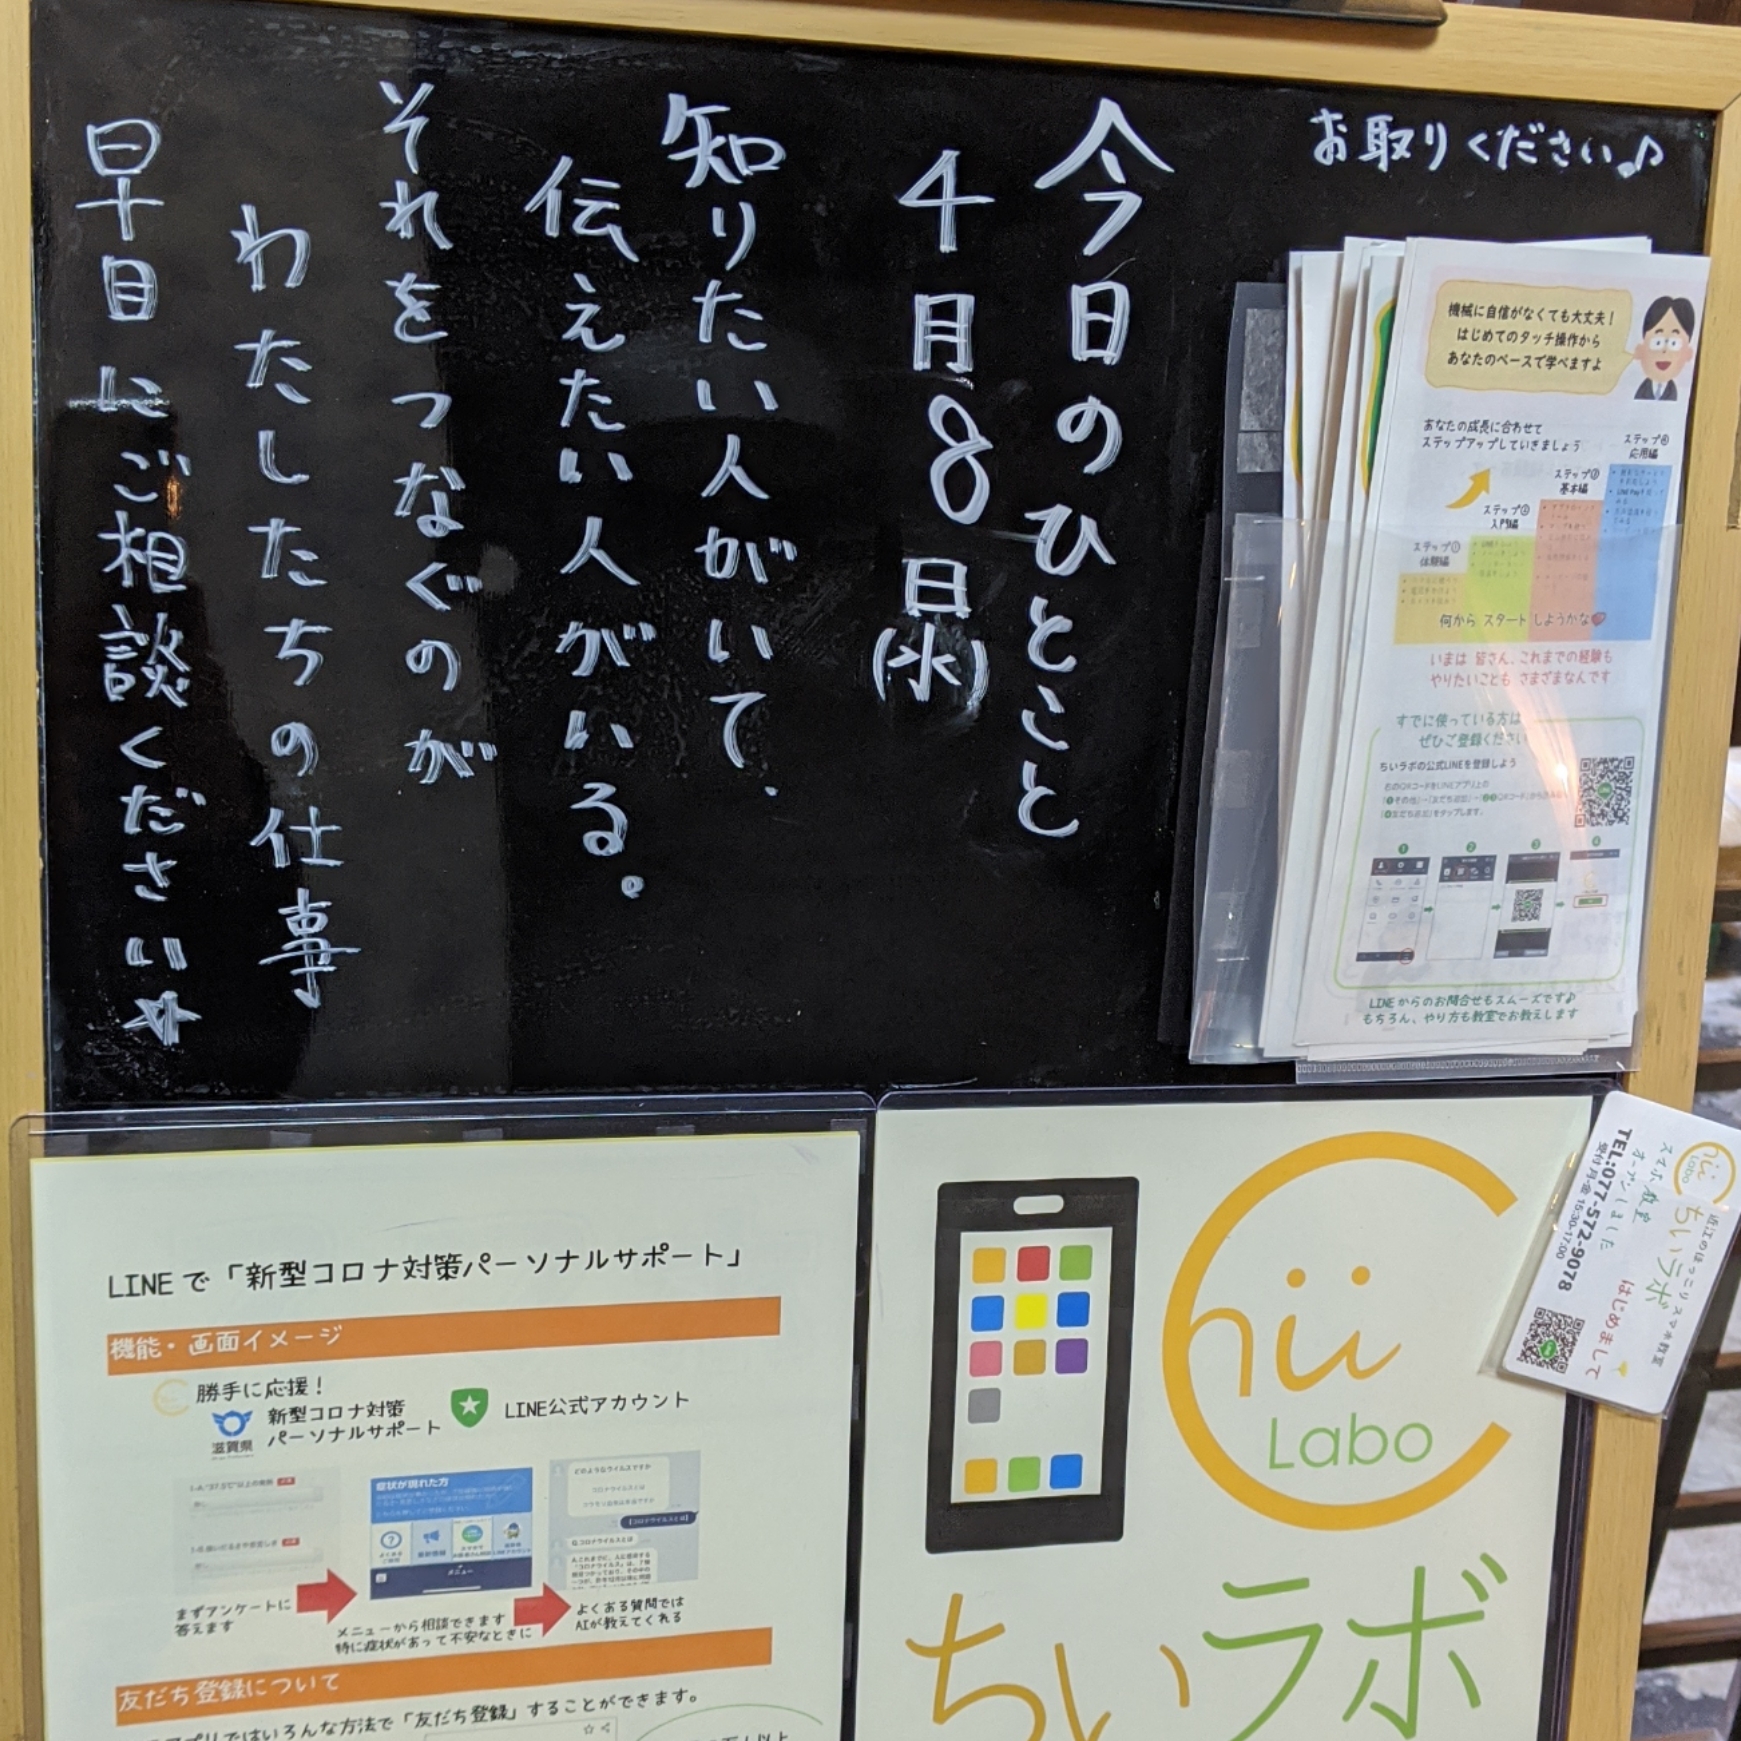 お取りください♪
今日のひとこと
4月8日(水)
知りたい人がいて、
伝えたい人がいる。
それをつなぐのが
わたしたちの仕事
早目にご相談ください☆
機械に自信がなくても大丈夫!
はじめてのタッチ操作から
あなたのペースで学べますよ
あなたの成長に合わせて
ステップアップしていきましょう
ステップ④
応用編
ステップ③
基本編
ステップ②
入門編
ステップ①
体験編
何から スタート しようかな
いまは 皆さん、これまでの経験も
やりたいことも さまざまなんです
すでに使っている方は
ぜひご登録ください
ちいラボの公式LINEを登録しよう
右のQRコードをLINEアプリ上の
LINEからのお問合せもスムーズです♪
もちろん、やり方も教室でお教えします
Chii
Labo
ちいラボ
近江のほっこりスマホ教室
ちいラボ
はじめまして
スマホ教室
オープンしました
TEL:077-572-9078
受付 月-金 15:30-17:00
Chii
Labo
LINEで「新型コロナ対策パーソナルサポート」
機能・画面イメージ
勝手に応援!
滋賀県
新型コロナ対策
パーソナルサポート
LINE公式アカウント
症状が現れた方
メニュー
どのようなウイルスですか
コロナウイルスとは
まずアンケートに
答えます
メニューから相談できます
特に症状があって不安なときに
よくある質問では
AIが教えてくれる
友だち登録について
アプリではいろんな方法で「友だち登録」することができます。